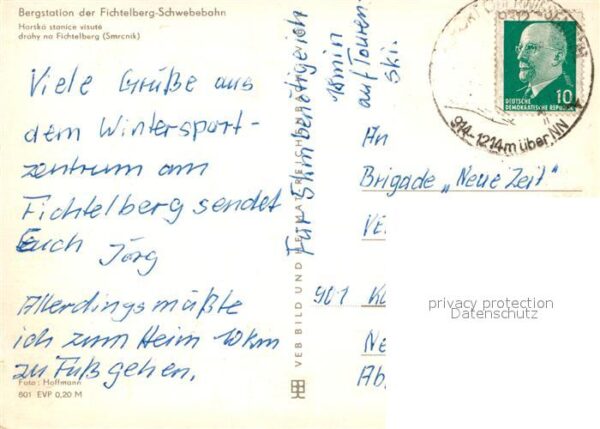 Bergstation der Fichtelberg-Schwebebahn
Horská stanice visuté
dráhy na Fichtelberg (Smrcnik)
Viele Grüße aus
dem Wintersport-
zentrum am
Fichtelberg sendet
Euch Jörg
Allerdings müßte
ich zum Heim 10km
zu Fuß gehen.
Foto: Hoffmann
801 EVP 0,20 M
VEB BILD UND HEIMAT REICHENBACH
Für 5km benötige ich
18min
auf Touren
Ski.
DEUTSCHE
DEMOKRATISCHE REPUBLIK
10
914-1214m über NN
An
Brigade „Neue Zeit"
VE
901 K
Ne
Ab
privacy protection
Datenschutz